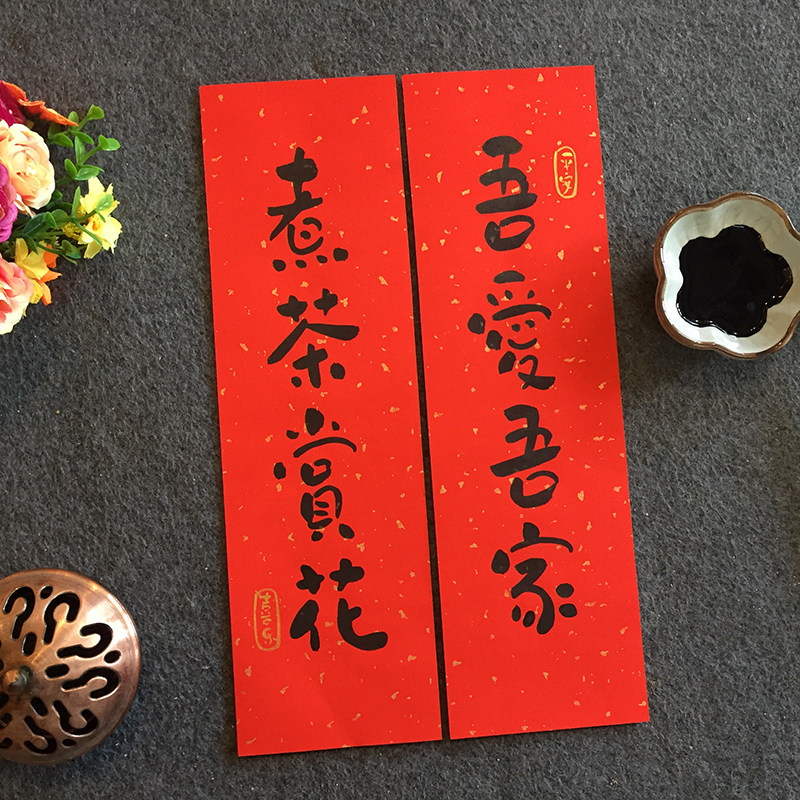 吾愛吾家
煮茶賞花
平安